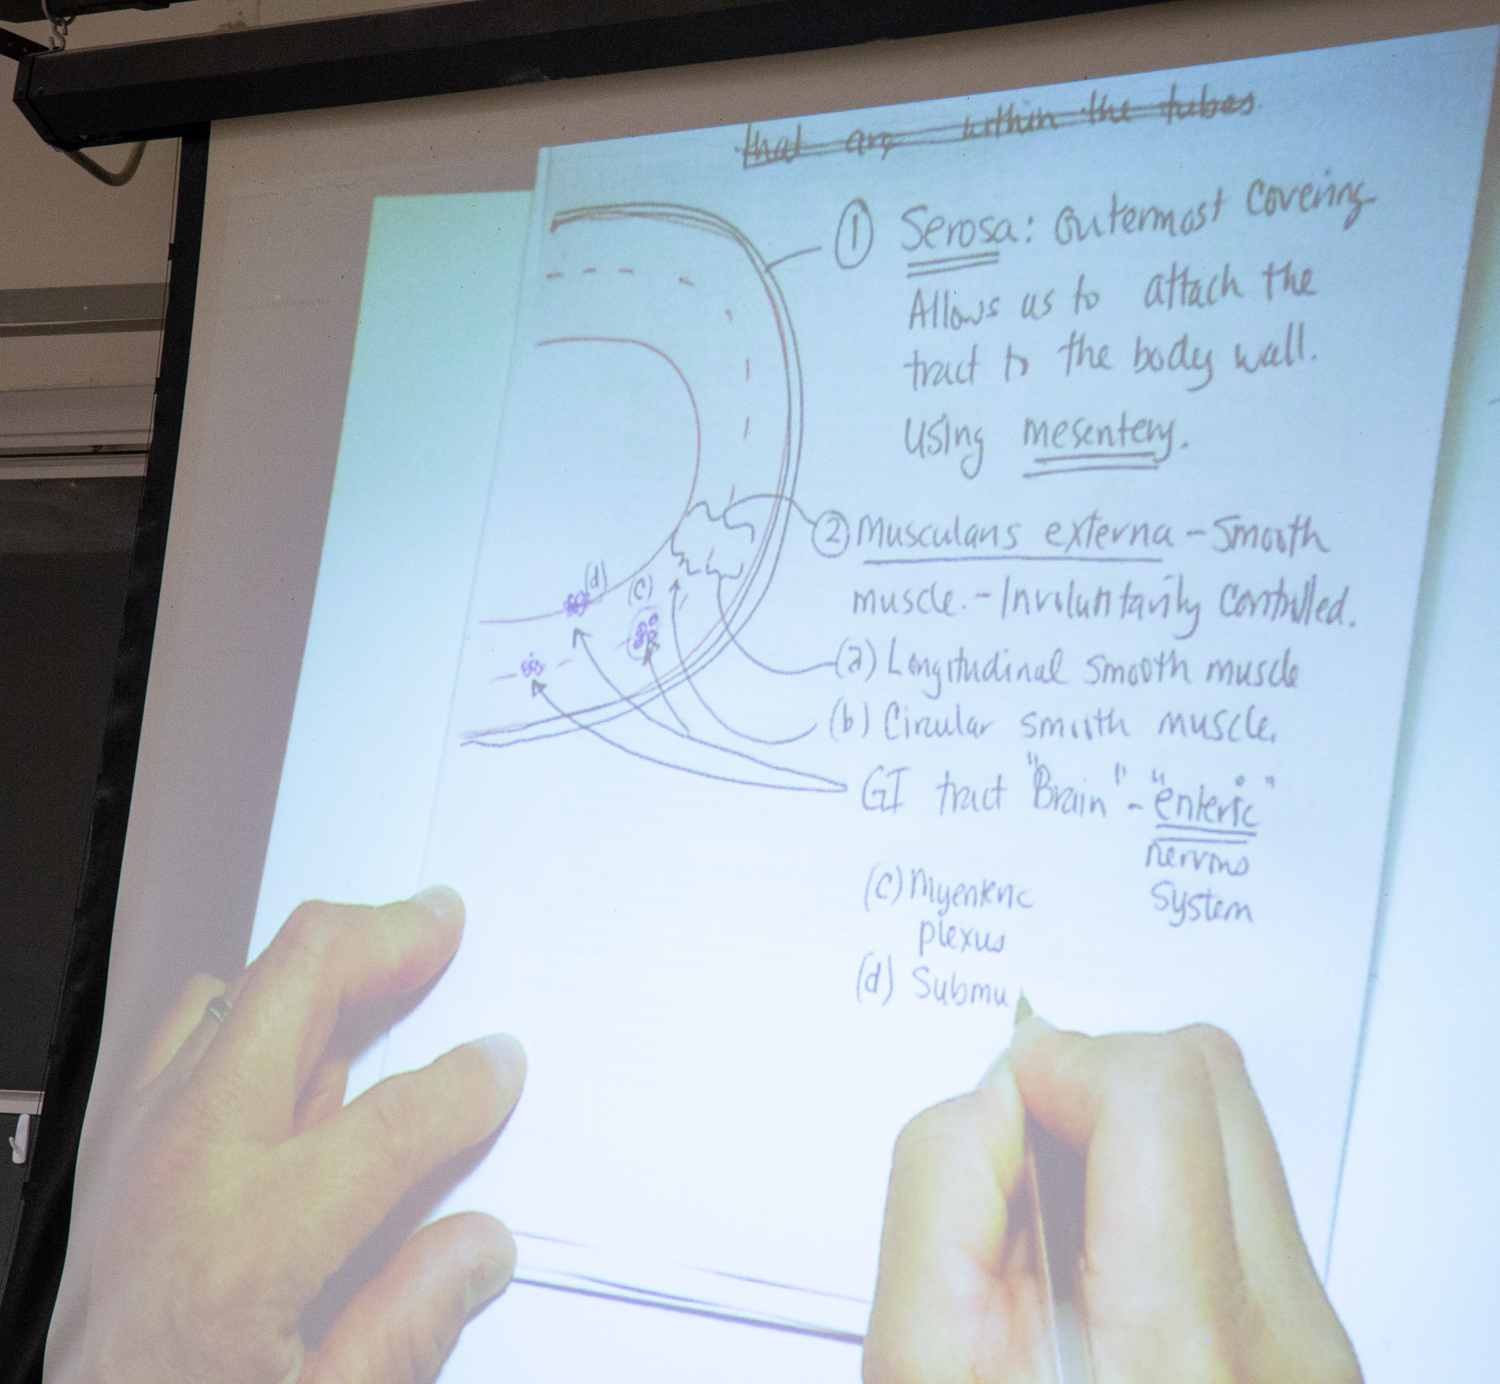 that are within the tubes
① Serosa: Outermost covering
Allows us to attach the
tract to the body wall.
using mesentery.
② Muscularis externa - Smooth
muscle. - Involuntarily Controlled.
(a) Longitudinal smooth muscle
(b) Circular smooth muscle.
GI tract "Brain" - "enteric"
nervous
system
(c) Myenteric
plexus
(d) Submu
(d)
(c)